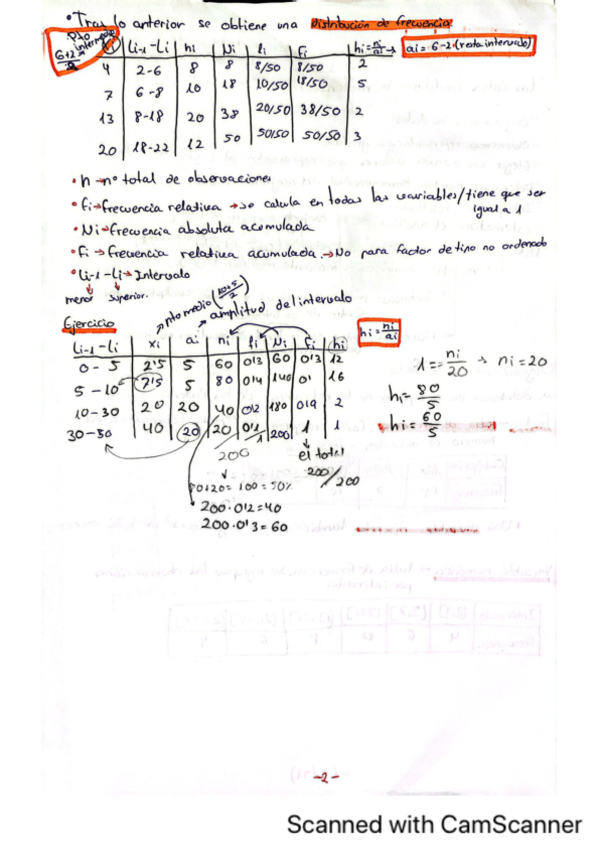 • Tras lo anterior se obtiene una Distribución de frecuencia
Pto intervalo 6+2/2
xi | Li-1 - Li | ni | Ni | fi | Fi | hi = ni/ai → ai = 6-2 (resta intervalo)
4 | 2-6 | 8 | 8 | 8/50 | 8/50 | 2
7 | 6-8 | 10 | 18 | 10/50 | 18/50 | 5
13 | 8-18 | 20 | 38 | 20/50 | 38/50 | 2
20 | 18-22 | 12 | 50 | 50/50 | 50/50 | 3
• n → nº total de observaciones
• fi → frecuencia relativa → se calcula en todas las variables/tiene que ser
igual a 1
• Ni → frecuencia absoluta acumulada
• Fi → frecuencia relativa acumulada. → No para factor de tipo no ordenado
• Li-1 - Li → Intervalo
menor superior.
pto medio
amplitud del intervalo
Ejercicio
hi = ni/ai
Li-1 - Li | xi | ai | ni | fi | Ni | Fi | hi
0 - 5 | 2'5 | 5 | 60 | 0'3 | 60 | 0'3 | 12
5 - 10 | 7'5 | 5 | 80 | 0'4 | 140 | 0' | 16
10 - 30 | 20 | 20 | 40 | 0'2 | 180 | 0'9 | 2
30 - 50 | 40 | 20 | 20 | 0'1 | 200 | 1 | 1
1
1 = ni/20 → ni = 20
hi = 80/5
hi = 60/5
200
el total
200/200
80+20 = 100 = 50%
200 · 0'2 = 40
200 · 0'3 = 60
-2-
Scanned with CamScanner